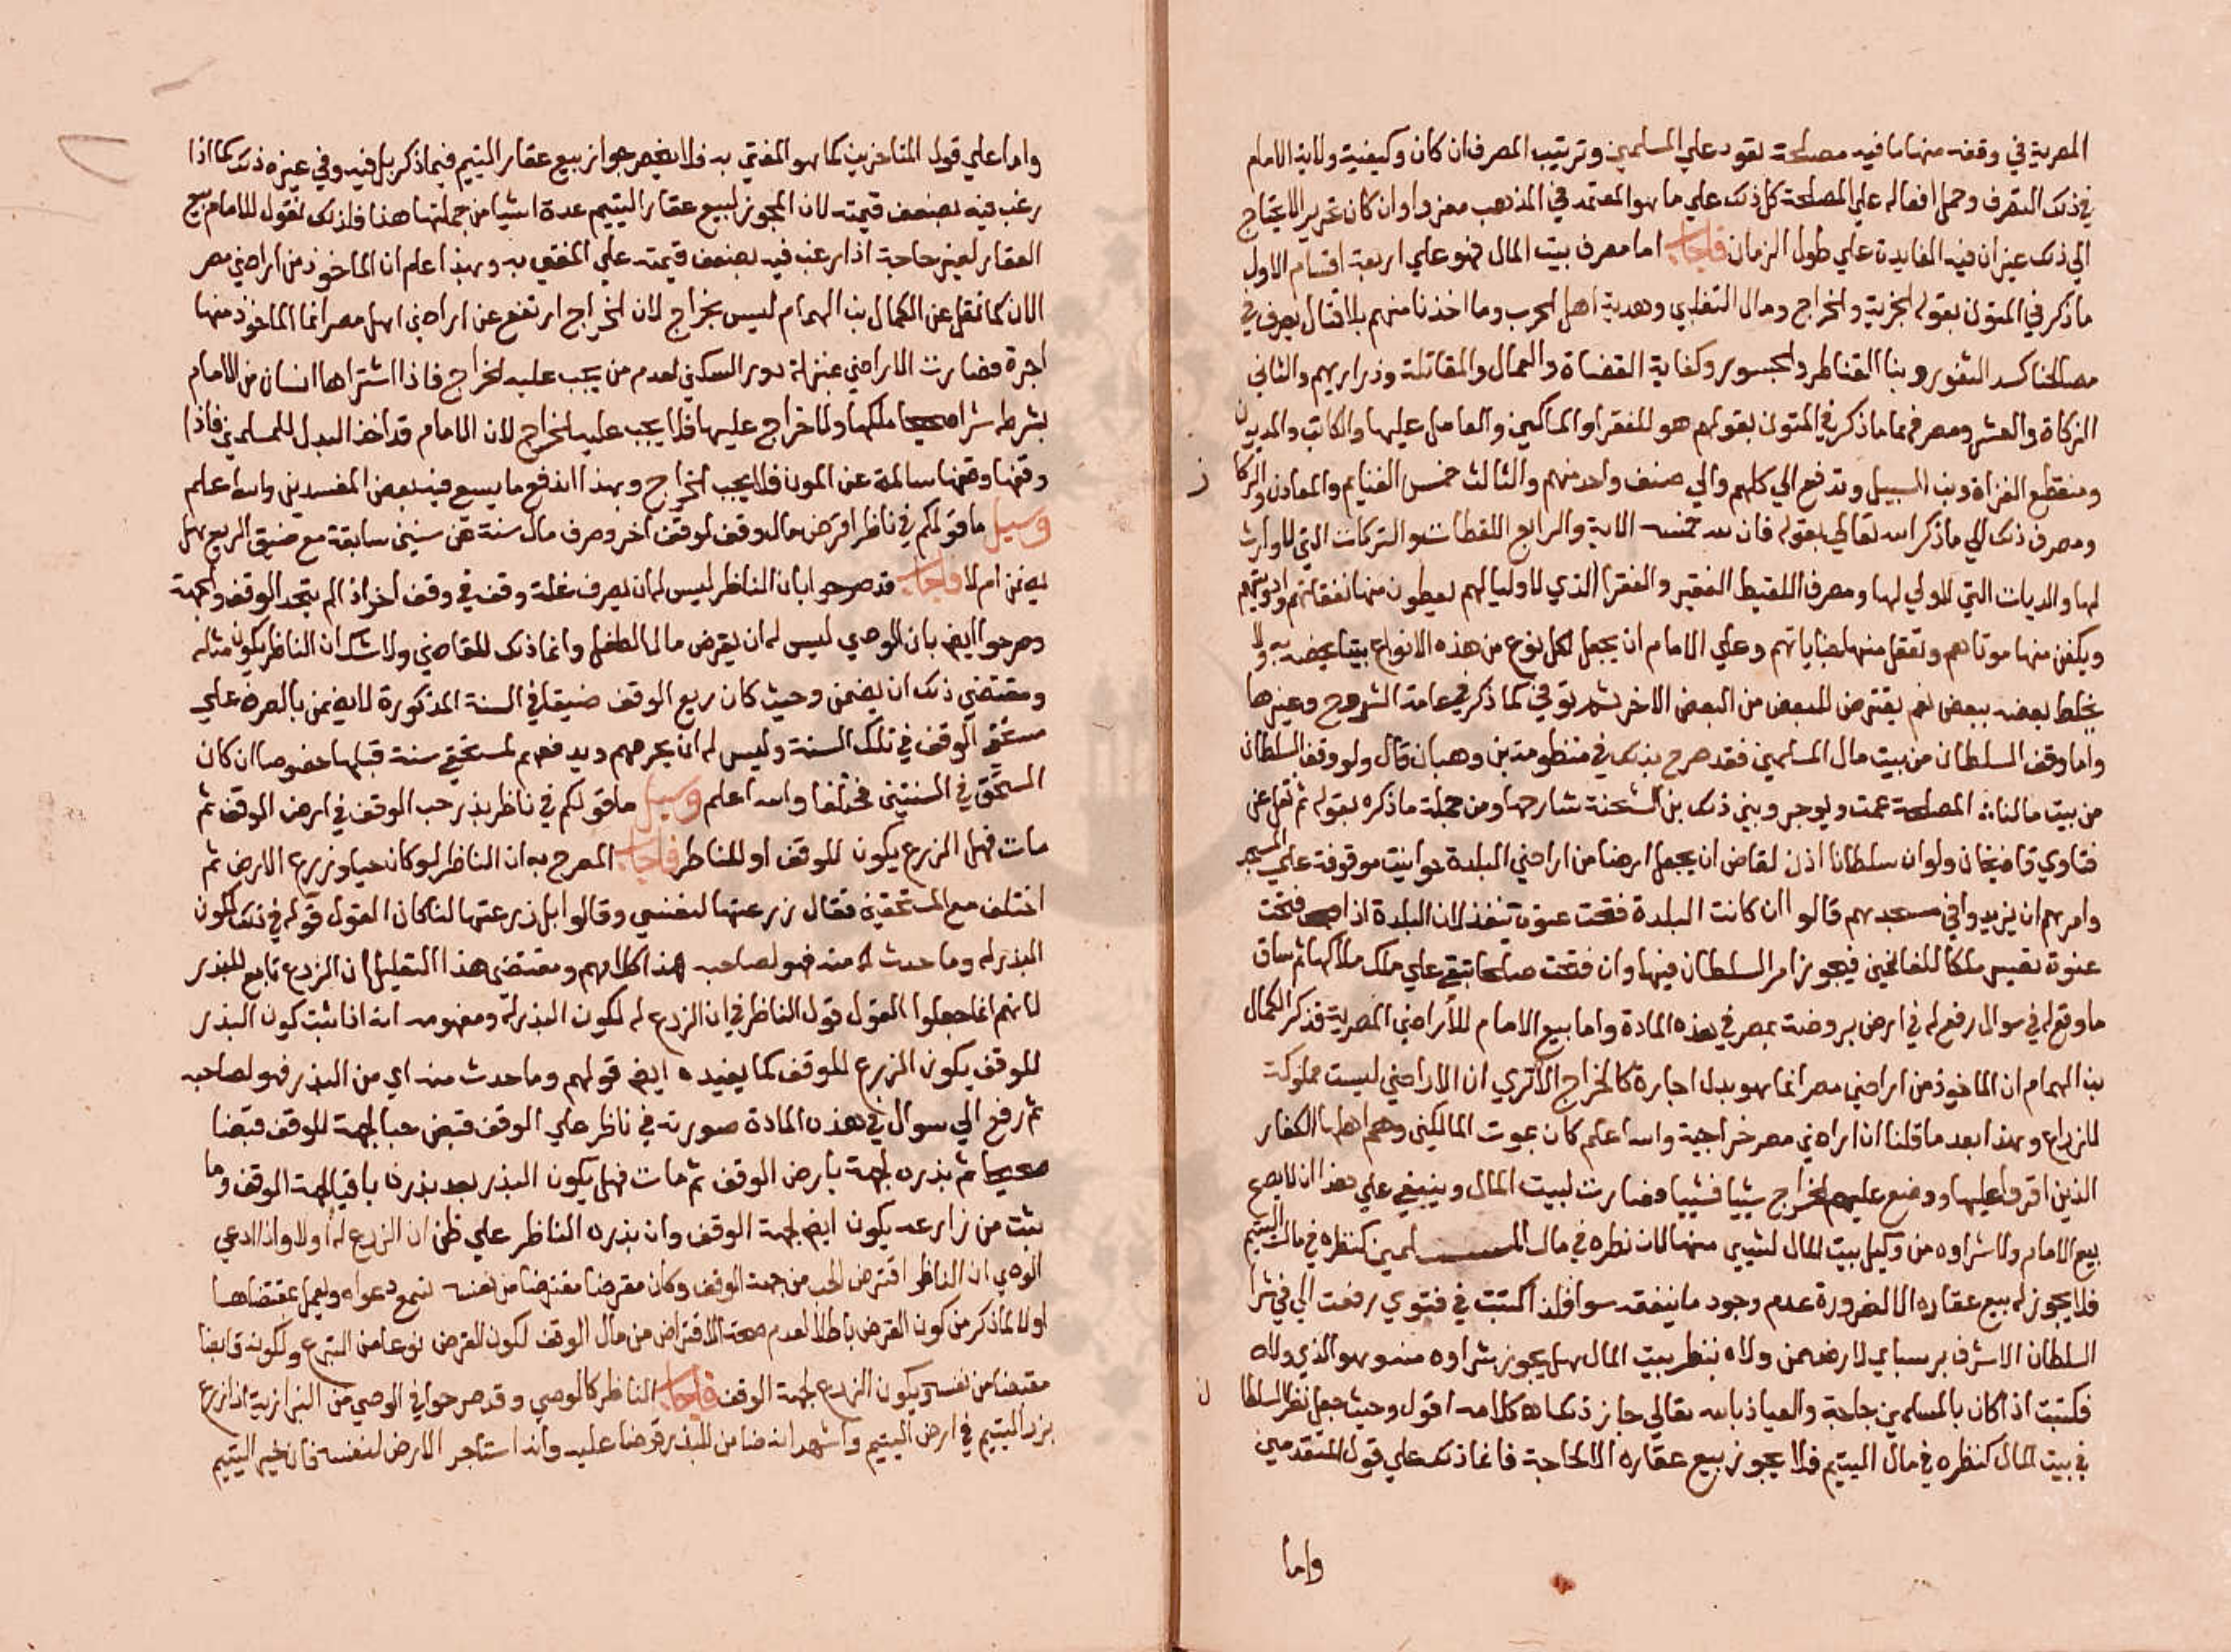 المصرية في وقفه منها ما فيه مصلحة تعود علي المسلمين وترتيب المصرف ان كان وكيفية ولاية الامام
في ذلك التصرف وحمل افعاله علي المصلحة كل ذلك علي ما هو المعتمد في المذهب معزوا وان كان تحرير الاحتياج
الي ذلك عيز ان فيه الفايدة علي طول الزمان فاجاب اما مصرف بيت المال فهو علي اربعة اقسام الاول
ما ذكر في المتون بقوله الجزية والخراج ومال التغلبي وهدية اهل الحرب وما اخذنا منهم بلا قتال يصرف في
مصالحنا كسد الثغور وبنا القناطر والجسور وكفاية القضاة والعمال والمقاتلة وذراريهم والثاني
الزكاة والعشر ومصرفهما ما ذكر في المتون بقولهم هو للفقرا والمساكين والعامل عليها والمكاتب والمديون
ومنقطع الغزاة وبن السبيل وتدفع الي كلهم والي صنف واحد منهم والثالث خمس الغنايم والمعادن والركا
ز
ومصرف ذلك الي ما ذكر الله تعالي بقوله فان لله خمسه الاية والرابع اللقطات والتركات التي لا وارث
لها والديات التي لا ولي لها ومصرف اللقيط الفقير والفقرا الذي لا اوليا لهم يعطون منها نفقاتهم وادويتهم
ويكفن منها موتاهم وتعقل منها جناياتهم وعلي الامام ان يجعل لكل نوع من هذه الانواع بيتا يخصه به ولا
يخلط بعضه ببعض نعم يقترض للبعض من البعض الاخر ثم يوفي كما ذكر في عامة الشروح وغيرها
واما وقف السلطان من بيت مال المسلمين فقد صرح بذلك في منظومة بن وهبان قال ولو وقف السلطان
من بيت مالنا :: لمصلحة عمت ويوجر وبين ذلك بن الشحنة شارحها ومن جملة ما ذكره بقوله ثم نقل عن
فتاوي قاضيخان ولو ان سلطانا اذن لقاض ان يجعل ارضا من اراضي البلدة حوانيت موقوفة علي المسجد
وامرهم ان يزيدوا في مسجدهم قالوا ان كانت البلدة فتحت عنوة تنفذ لان البلدة اذا فتحت
عنوة تصير ملكا للغانمين فيجوز امر السلطان فيها وان فتحت صلحا تبقي علي ملك ملاكها ثم ساق
ما وقع له في سوال رفع له في ارض بروضة بمصر في هذه المادة واما بيع الامام للاراضي المصرية فذكر الكمال
بن الهمام ان الماخوذ من اراضي مصر انما هو بدل اجارة كالخراج الا تري ان الاراضي ليست مملوكة
للزراع وهذا بعد ما قلنا ان اراضي مصر خراجية والله اعلم كان بموت المالكين وهم اهلها الكفار
الذين اقروا عليها ووضع عليهم الخراج شييا فشييا فصارت لبيت المال وينبغي علي هذا ان لا يصح
بيع الامام ولا شراوه من وكيل بيت المال لشيي منها لان نظره في مال المسلمين كنظره في مال اليتيم
فلا يجوز له بيع عقاره الا لضرورة عدم وجود ما ينفقه سواه فلذا كتبت في فتوي رفعت الي في شرا
السلطان الاشرف برسباي لارض ممن ولاه ننظر بيت المال هل يجوز شراوه منه وهو الذي ولاه
فكتبت اذا كان بالمسلمين حاجة والعياذ بالله تعالي جاز ذلك اه كلامه اقول وحيث جعل نظر السلطا
ن
في بيت المال كنظره في مال اليتيم فلا يجوز بيع عقاره الا لحاجة فانما ذلك علي قول المتقدمين
واما
واما علي قول المتاخرين كما هو المفتي به فلا ينحصر جواز بيع عقار اليتيم فيما ذكر بل فيه وفي غيره ذلك كما اذا
رغب فيه بضعف قيمته لان المجوز لبيع عقار اليتيم عدة اشيا من جملتها هذا فلذلك نقول للامام بيع
العقار لغير حاجة اذا رغب فيه بضعف قيمته علي المفتي به وبهذا اعلم ان الماخوذ من اراضي مصر
الان كما نقل عن الكمال بن الهمام ليس بخراج لان الخراج ارتفع عن اراضي اهل مصر انما الماخوذ منها
اجرة فصارت الاراضي بمنزلة دور السكني لعدم من يجب عليه الخراج فاذا اشتراها انسان من الامام
بشرطه شرا صحيحا ملكها ولا خراج عليها فلا يجب عليه الخراج لان الامام قد اخذ البدل للمسلمين فاذا
وقفها وقفها سالمة عن المون فلا يجب الخراج وبهذا اندفع ما يسع فيه بعض المفسدين والله اعلم
وسيل ما قولكم في ناظر اقرض مال وقف لوقف اخر وصرف مال سنة عن سنين سابقة مع ضيق الريع هل
يضمن ام لا فاجاب قد صرحوا بان الناظر ليس له ان يصرف غلة وقف في وقف اخر اذا لم يتحد الوقف والجهة
وصرحوا ايض بان الوصي ليس له ان يقرض مال الطفل وانما ذلك للقاضي ولا شك ان الناظر يكون مثله
ومقتضي ذلك ان يضمن وحيث كان ريع الوقف ضيقا في السنة المذكورة لا يضمن بالصرف علي
مستحقي الوقف في تلك السنة وليس له ان يحرمهم ويدفعهم لمستحقي سنة قبلها خصوصا ان كان
المستحق في السنتين مختلفا والله اعلم وسيل ما قولكم في ناظر بذر حب الوقف في ارض الوقف ثم
مات فهل الزرع يكون للوقف او للناظر فاجاب المصرح به ان الناظر لو كان حيا وزرع الارض ثم
اختلف مع المستحقين فقال زرعتها لنفسي وقالوا بل زرعتها لنا كان القول قوله في ذلك لكون
البذر له وما حدث له منه فهو لصاحبه هذا كلامهم ومقتضي هذا التعليل ان الزرع تابع للبذر
لانهم انما جعلوا القول قول الناظر في ان الزرع له لكون البذر له ومفهومه انه اذا ثبت كون البذر
للوقف يكون الزرع للوقف كما يفيده ايض قولهم وما حدث منه اي من البذر فهو لصاحبه
ثم رفع الي سوال في هذه المادة صورته في ناظر علي الوقف قبض حبا لجهة للوقف قبضا
صحيحا ثم بذره لجهة بارض الوقف ثم مات فهل يكون البذر بعد بذره باقيا لجهة الوقف وما
نبت من زارعه يكون ايض لجهة الوقف وان بذره الناظر علي ظن ان الزرع له او لا واذا ادعي
الوصي ان الناظر اقترض الحب من جهة الوقف وكان مقرضا مقترضا من نفسه تسمع دعواه ويعمل بمقتضاها
او لا لما ذكر من كون القرض باطلا لعدم صحة الاقتراض من مال الوقف لكون القرض نوعا من التبرع ولكونه قابضا
مقبضا من نفسه ويكون الزرع لجهة الوقف فاجاب الناظر كالوصي وقد صرحوا في الوصي من البزازية اذا زرع
بزر اليتيم في ارض اليتيم واشهد انه ضامن للبذر قرضا عليه وانه استاجر الارض لنفسه فان خير اليتيم